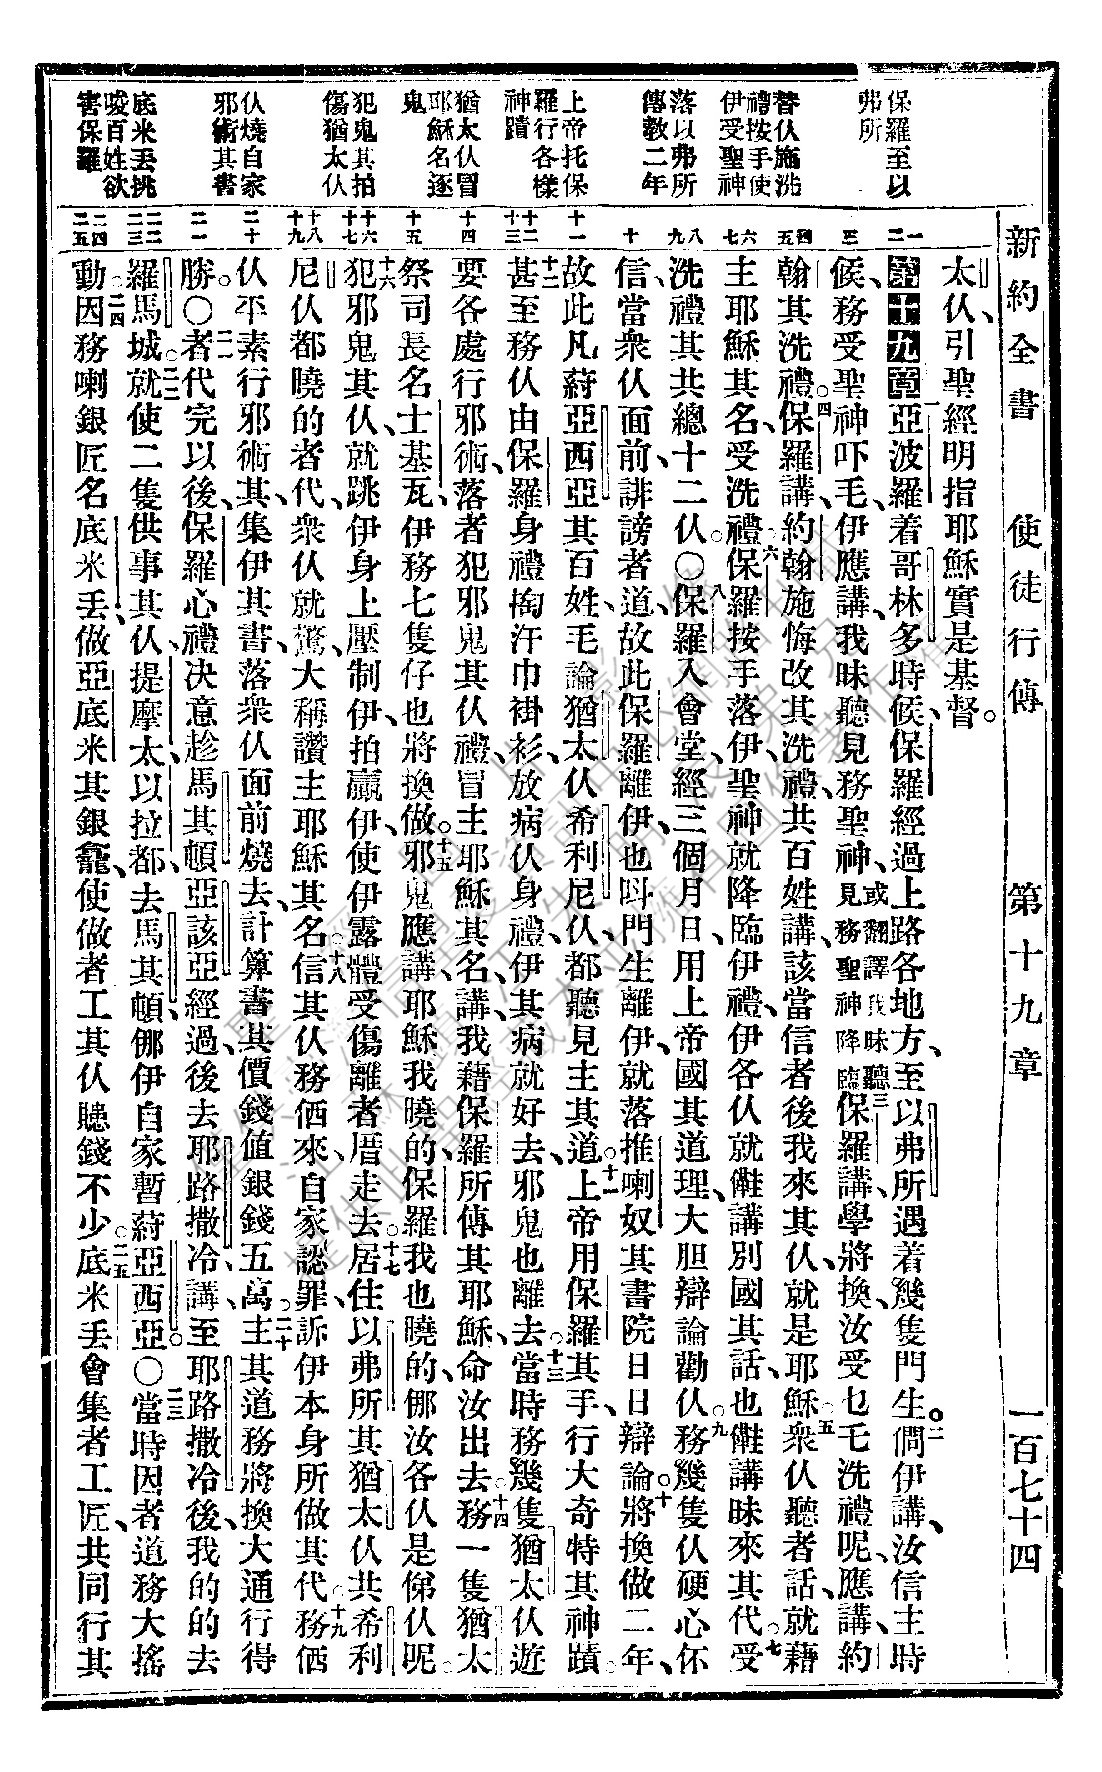 新約全書 使徒行傳 第十九章 一百七十四
保羅至以
弗所
替仫施洗
禮按手使
伊受聖神
落以弗所
傳教二年
上帝托保
羅行各樣
神蹟
猶太仫冒
耶穌名逐
鬼
犯鬼其拍
傷猶太仫
仫燒自家
邪術其書
底米丟挑
唆百姓欲
害保羅
太仫、引聖經明指耶穌實是基督。
第十九章 一亞波羅着哥林多時候、保羅經過上路各地方、至以弗所遇着幾隻門生。二問伊講、汝信主時
候、務受聖神吓毛、伊應講、我昧聽見務聖神、或翻譯我昧聽見務聖神降臨三保羅講、學將換、汝受乜乇洗禮呢、應講、約
翰其洗禮。四保羅講、約翰施悔改其洗禮、共百姓講、該當信者後我來其仫、就是耶穌。五衆仫聽者話、就藉
主耶穌其名、受洗禮。六保羅按手落伊、聖神就降臨伊禮、伊各仫就儺講別國其話、也儺講昧來其代。七受
洗禮其共總十二仫。○八保羅入會堂、經三個月日、用上帝國其道理、大胆辯論勸仫。九務幾隻仫硬心伓
信、當衆仫面前、誹謗者道、故此保羅離伊、也呌門生離伊、就落推喇奴其書院日日辯論。十將換做二年、
故此凡蒞亞西亞其百姓、毛論猶太仫希利尼仫、都聽見主其道。十一上帝用保羅其手、行大奇特其神蹟。
十二甚至務仫由保羅身禮掏汗巾褂衫、放病仫身禮、伊其病就好去、邪鬼也離去。十三當時務幾隻猶太仫、遊
要各處行邪術、落者犯邪鬼其仫禮、冒主耶穌其名、講、我藉保羅所傳其耶穌、命汝出去。十四務一隻猶太
祭司長名士基瓦、伊務七隻仔、也將換做。十五邪鬼應講、耶穌我曉的、保羅我也曉的、㑚汝各仫是俤仫呢。
十六犯邪鬼其仫、就跳伊身上、壓制伊、拍贏伊、使伊露體受傷、離者厝走去。十七居住以弗所其猶太仫共希利
尼仫都曉的者代、衆仫就驚、大稱讚主耶穌其名。十八信其仫務価來自家認罪、訴伊本身所做其代。十九務価
仫平素行邪術其、集伊其書、落衆仫面前燒去、計算書其價錢、值銀錢五萬。二十主其道務將換大通行得
勝。○二一者代完以後、保羅心禮决意趁馬其頓亞該亞經過、後去耶路撒冷、講、至耶路撒冷後、我的的去
羅馬城。二二就使二隻供事其仫、提摩太以拉都、去馬其頓、㑚伊自家暫蒞亞西亞。○二三當時因者道務大搖
動。二四因務喇銀匠名底米丟、做亞底米其銀龕、使做者工其仫賺錢不少。二五底米丟會集者工匠、共同行其
一二
三
四五
六七
八九
十
十一
十二十三
十四
十五
十六十七
十八十九
二十
二一
二二二三
二四二五